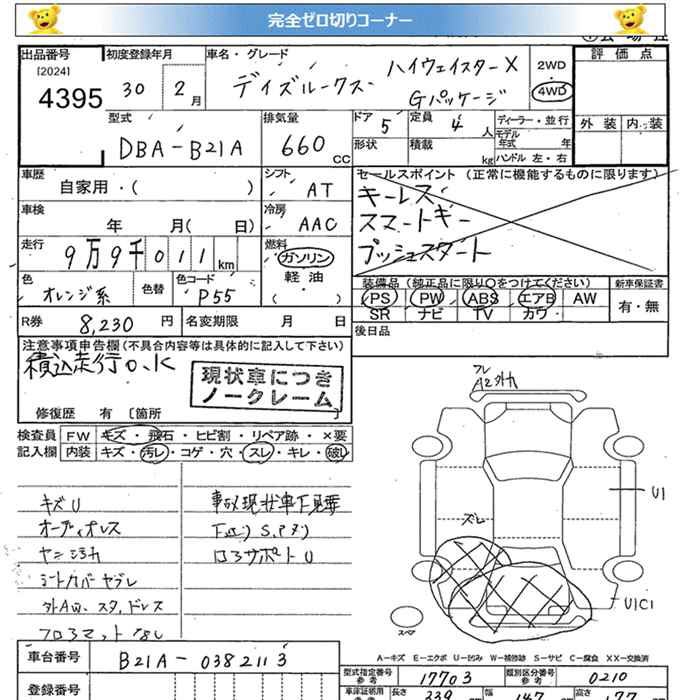 完全ゼロ切りコーナー
出品番号
[2024]
4395
初度登録年月
30 2月
車名・グレード
デイズルークス ハイウェイスターX
Gパッケージ
2WD
4WD
評価点
外装 内装
型式
DBA-B21A
排気量
660 CC
ドア 5
形状
定員 4 人
積載 kg
ディーラー・並行
モデル年式 年
ハンドル 左・右
車歴
自家用・( )
シフト
AT
セールスポイント (正常に機能するものに限ります)
キーレス
スマートキー
プッシュスタート
車検
年 月( 日)
冷房
AAC
走行
9万9千011km
燃料
ガソリン
軽油
( )
色
オレンジ系
色替
色コード
P55
装備品 (純正品に限り○をつけてください)
PS PW ABS エアB AW
SR ナビ TV カワ
新車保証書
有・無
R券 8,230 円
名変期限 月 日
後日品
注意事項申告欄(不具合内容等は具体的に記入して下さい)
積込走行O.K
現状車につき
ノークレーム
修復歴 有 〔箇所 〕
検査員
記入欄
FW キズ・飛石・ヒビ割・リペア跡・×要
内装 キズ・汚レ・コゲ・穴・スレ・キレ・破レ
キズU
オーディオレス
シートカバーヤブレ
外AW、スタッドレス
フロアマットなし
事故現状車下見要
下回りS,Pスリ
コアサポートU
ズレ
U1
U1C1
スペア
A−キズ E−エクボ U−凹み W−補修跡 S−サビ C−腐食 XX−交換済
車台番号
B21A-0382113
登録番号
型式指定番号
参考
17703
類別区分番号
参考
0210
車庫証明用
参考
長さ 339 幅 147 高さ 177